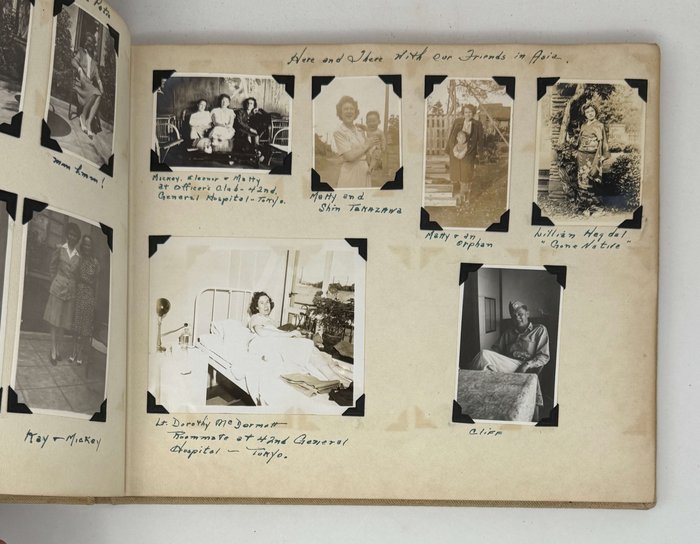 Path
mmm hmm!
Kay & Mickey
Here and There With our Friends in Asia.
Mickey, Eleanor & Matty
at Officer's Club - 42nd.
General Hospital - Tokyo.
Matty and
Shin Takazawa
Matty & an
orphan
Lillian Hagdal
"Gone Native"
Lt. Dorothy McDermott
Roommate at 42nd General
Hospital - Tokyo.
Cliff